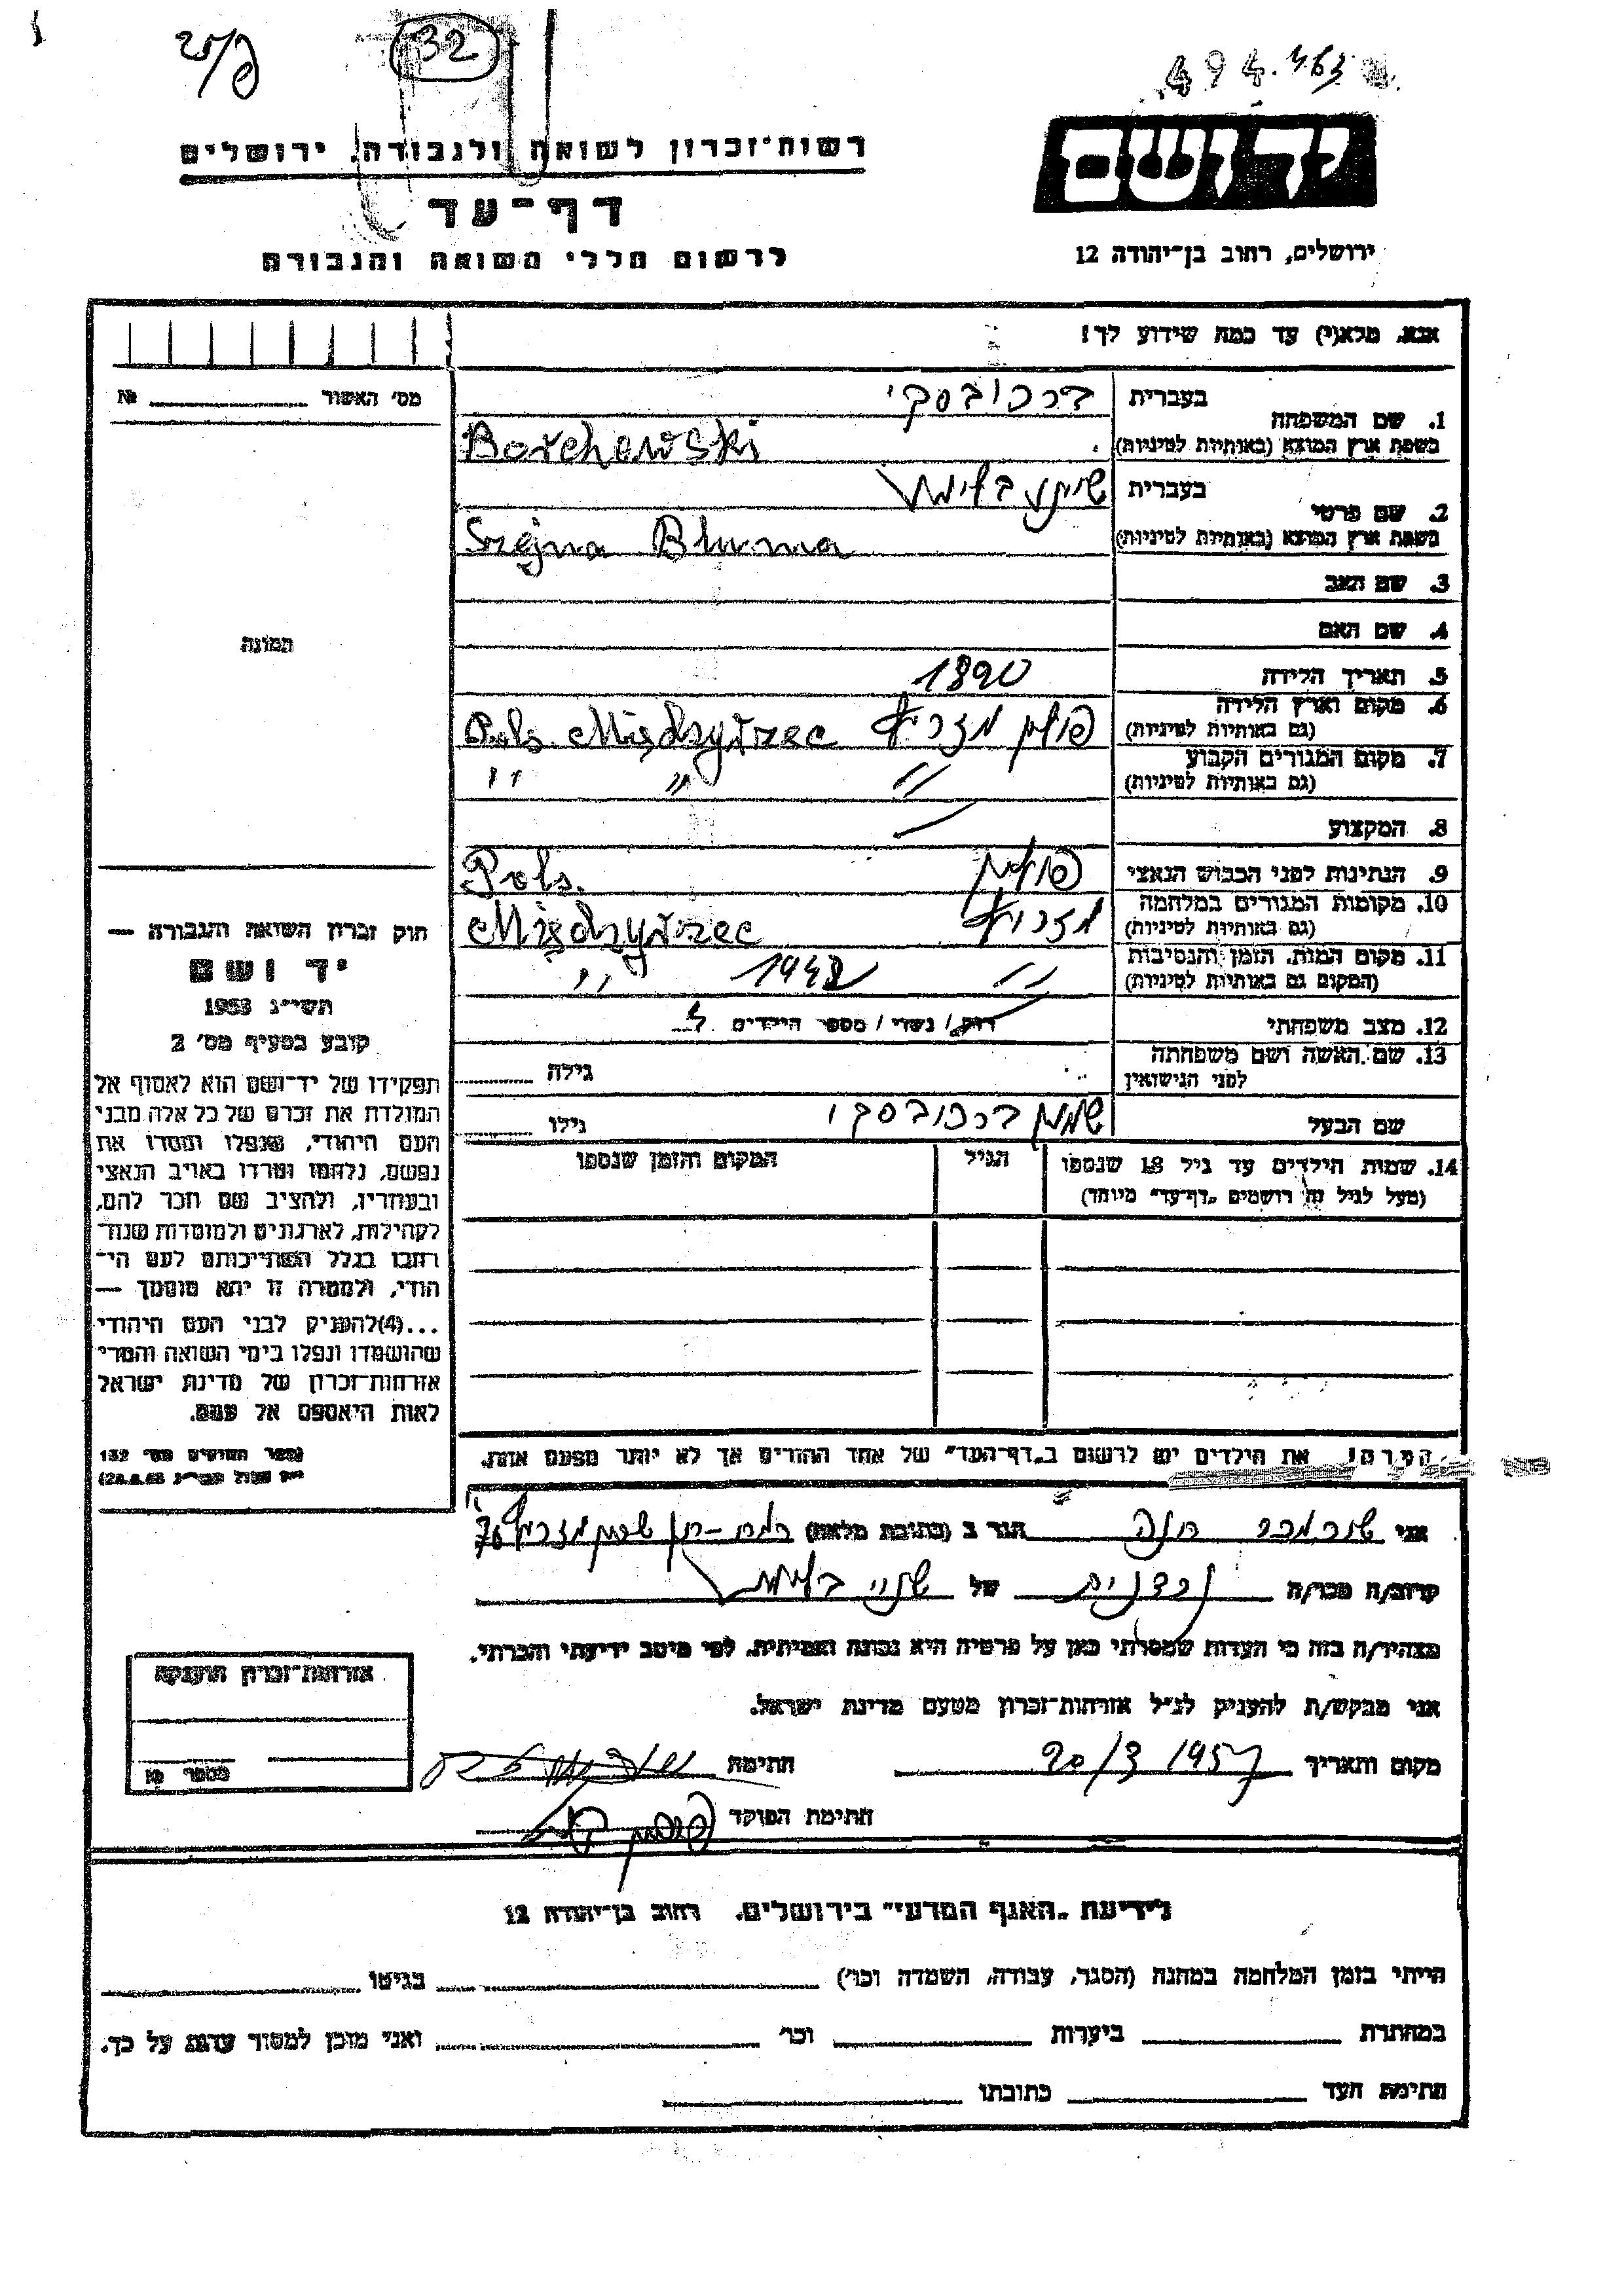 32
רשות־זכרון לשואה ולגבורה, ירושלים
דף־עד
לרשום חללי השואה והגבורה
יד ושם
ירושלים, רחוב בן־יהודה 12
אנא, מלא(י) עד כמה שידוע לך!
מס׳ האשור № 
תמונה
1. שם המשפחה
בעברית ברכובסקי
בשפת ארץ המוצא (באותיות לטיניות) Borchewski
2. שם פרטי
בעברית שיינע בלומה
בשפת ארץ המוצא (באותיות לטיניות) Szejna Bluma
3. שם האב
4. שם האם
5. תאריך הלידה 1890
6. מקום וארץ הלידה
(גם באותיות לטיניות) פולין מזריץ Pols. Międzyrzec
7. מקום המגורים הקבוע
(גם באותיות לטיניות) " " "
8. המקצוע —
9. הנתינות לפני הכבוש הנאצי פולין Pols.
10. מקומות המגורים במלחמה
(גם באותיות לטיניות) מזריץ Międzyrzec
11. מקום המות, הזמן והנסיבות
(המקום גם באותיות לטיניות) " 1942 "
12. מצב משפחתי רוק / נשוי / מספר הילדים
13. שם האשה ושם משפחתה
לפני הנישואין
גילה
שם הבעל ברכובסקי גילו
14. שמות הילדים עד גיל 18 שנספו
(מעל לגיל זה רושמים „דף־עד” מיוחד)
הגיל
המקום והזמן שנספו
הערה! את הילדים יש לרשום ב„דף־העד” של אחד ההורים אך לא יותר מפעם אחת.
חוק זכרון השואה והגבורה —
יד ושם
תשי״ג 1953
קובע בסעיף מס׳ 2
תפקידו של יד־ושם הוא לאסוף אל
המולדת את זכרם של כל אלה מבני
העם היהודי, שנפלו ומסרו את
נפשם, נלחמו ומרדו באויב הנאצי
ובעוזריו, ולהציב שם וזכר להם,
לקהילות, לארגונים ולמוסדות שנח־
רבו בגלל השתייכותם לעם הי־
הודי, ולמטרה זו יהא מוסמך —
...(4)להעניק לבני העם היהודי
שהושמדו ונפלו בימי השואה והמרי
אזרחות־זכרון של מדינת ישראל
לאות היאספם אל עמם.
(ספר החוקים מס׳ 132
אני הגר ב (כתובת מלאה)
קרוב/ה מכר/ה של בלומה
מצהיר/ה בזה כי העדות שמסרתי כאן על פרטיה היא נכונה ואמיתית, לפי מיטב ידיעתי והכרתי.
אני מבקש/ת להעניק לנ״ל אזרחות־זכרון מטעם מדינת ישראל.
מקום ותאריך 20/3 1957 חתימה
חתימת הפוקד
אזרחות־זכרון הוענקה
מספר №
לידיעת „האגף המדעי” בירושלים, רחוב בן־יהודה 12
הייתי בזמן המלחמה במחנה (הסגר, עבודה, השמדה וכו׳) בגיטו
במחתרת ביערות וכו׳ ואני מוכן למסור עדות על כך.
חתימת העד כתובתו